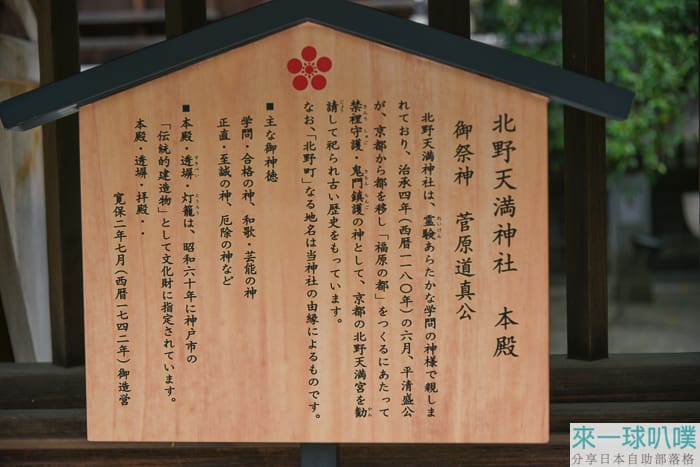 北野天満神社 本殿
御祭神 菅原道真公
北野天満神社は、霊験あらたかな学問の神様で親しま
れいけん
れており、治承四年(西暦一一八〇年)の六月、平清盛公
が、京都から都を移し「福原の都」をつくるにあたって
禁裡守護・鬼門鎮護の神として、京都の北野天満宮を勧
きんり しゅご きもん ちんご かん
請して祀られ古い歴史をもっています。
じょう
なお、「北野町」なる地名は当神社の由縁によるものです。
■主な御神徳
学問・合格の神、和歌・芸能の神
正直・至誠の神、厄除の神など
■本殿・透塀・灯籠は、昭和六十年に神戸市の
すきべい とうろう
「伝統的建造物」として文化財に指定されています。
本殿・透塀・拝殿・・
寛保二年七月(西暦一七四二年)御造営
來一球叭噗
分享日本自助部落格